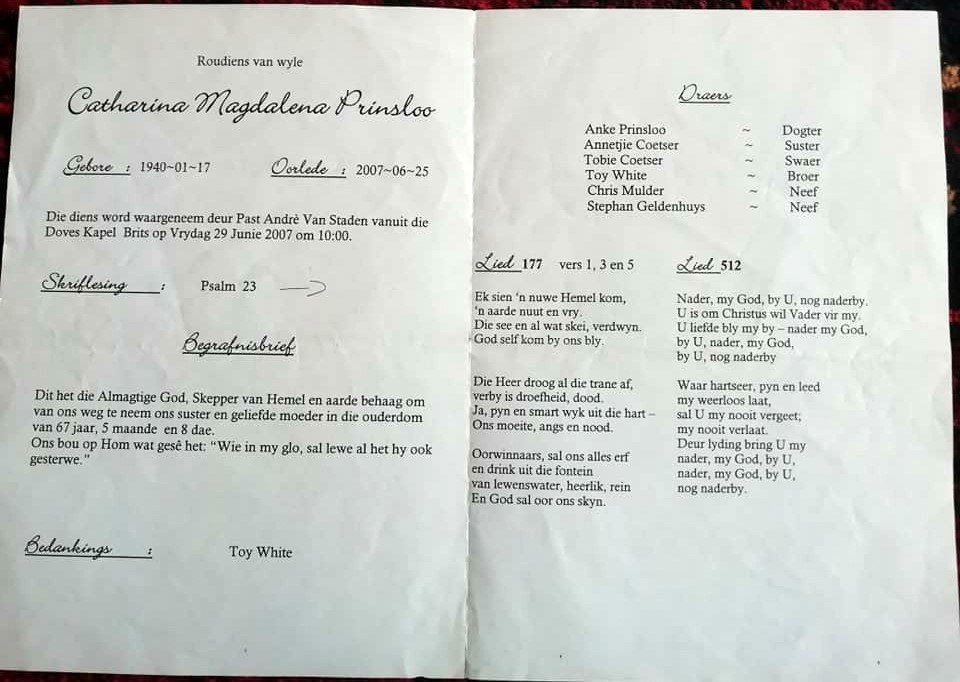 Roudiens van wyle
Catharina Magdalena Prinsloo
Gebore : 1940~01~17 Oorlede : 2007~06~25
Die diens word waargeneem deur Past Andrè Van Staden vanuit die
Doves Kapel Brits op Vrydag 29 Junie 2007 om 10:00.
Skriflesing : Psalm 23
Begrafnisbrief
Dit het die Almagtige God, Skepper van Hemel en aarde behaag om
van ons weg te neem ons suster en geliefde moeder in die ouderdom
van 67 jaar, 5 maande en 8 dae.
Ons bou op Hom wat gesê het: “Wie in my glo, sal lewe al het hy ook
gesterwe.”
Bedankings : Toy White
Draers
Anke Prinsloo ~ Dogter
Annetjie Coetser ~ Suster
Tobie Coetser ~ Swaer
Toy White ~ Broer
Chris Mulder ~ Neef
Stephan Geldenhuys ~ Neef
Lied 177 vers 1, 3 en 5
Ek sien ‘n nuwe Hemel kom,
‘n aarde nuut en vry.
Die see en al wat skei, verdwyn.
God self kom by ons bly.
Die Heer droog al die trane af,
verby is droefheid, dood.
Ja, pyn en smart wyk uit die hart –
Ons moeite, angs en nood.
Oorwinnaars, sal ons alles erf
en drink uit die fontein
van lewenswater, heerlik, rein
En God sal oor ons skyn.
Lied 512
Nader, my God, by U, nog naderby.
U is om Christus wil Vader vir my.
U liefde bly my by – nader my God,
by U, nader, my God,
by U, nog naderby
Waar hartseer, pyn en leed
my weerloos laat,
sal U my nooit vergeet;
my nooit verlaat.
Deur lyding bring U my
nader, my God, by U,
nader, my God, by U,
nog naderby.